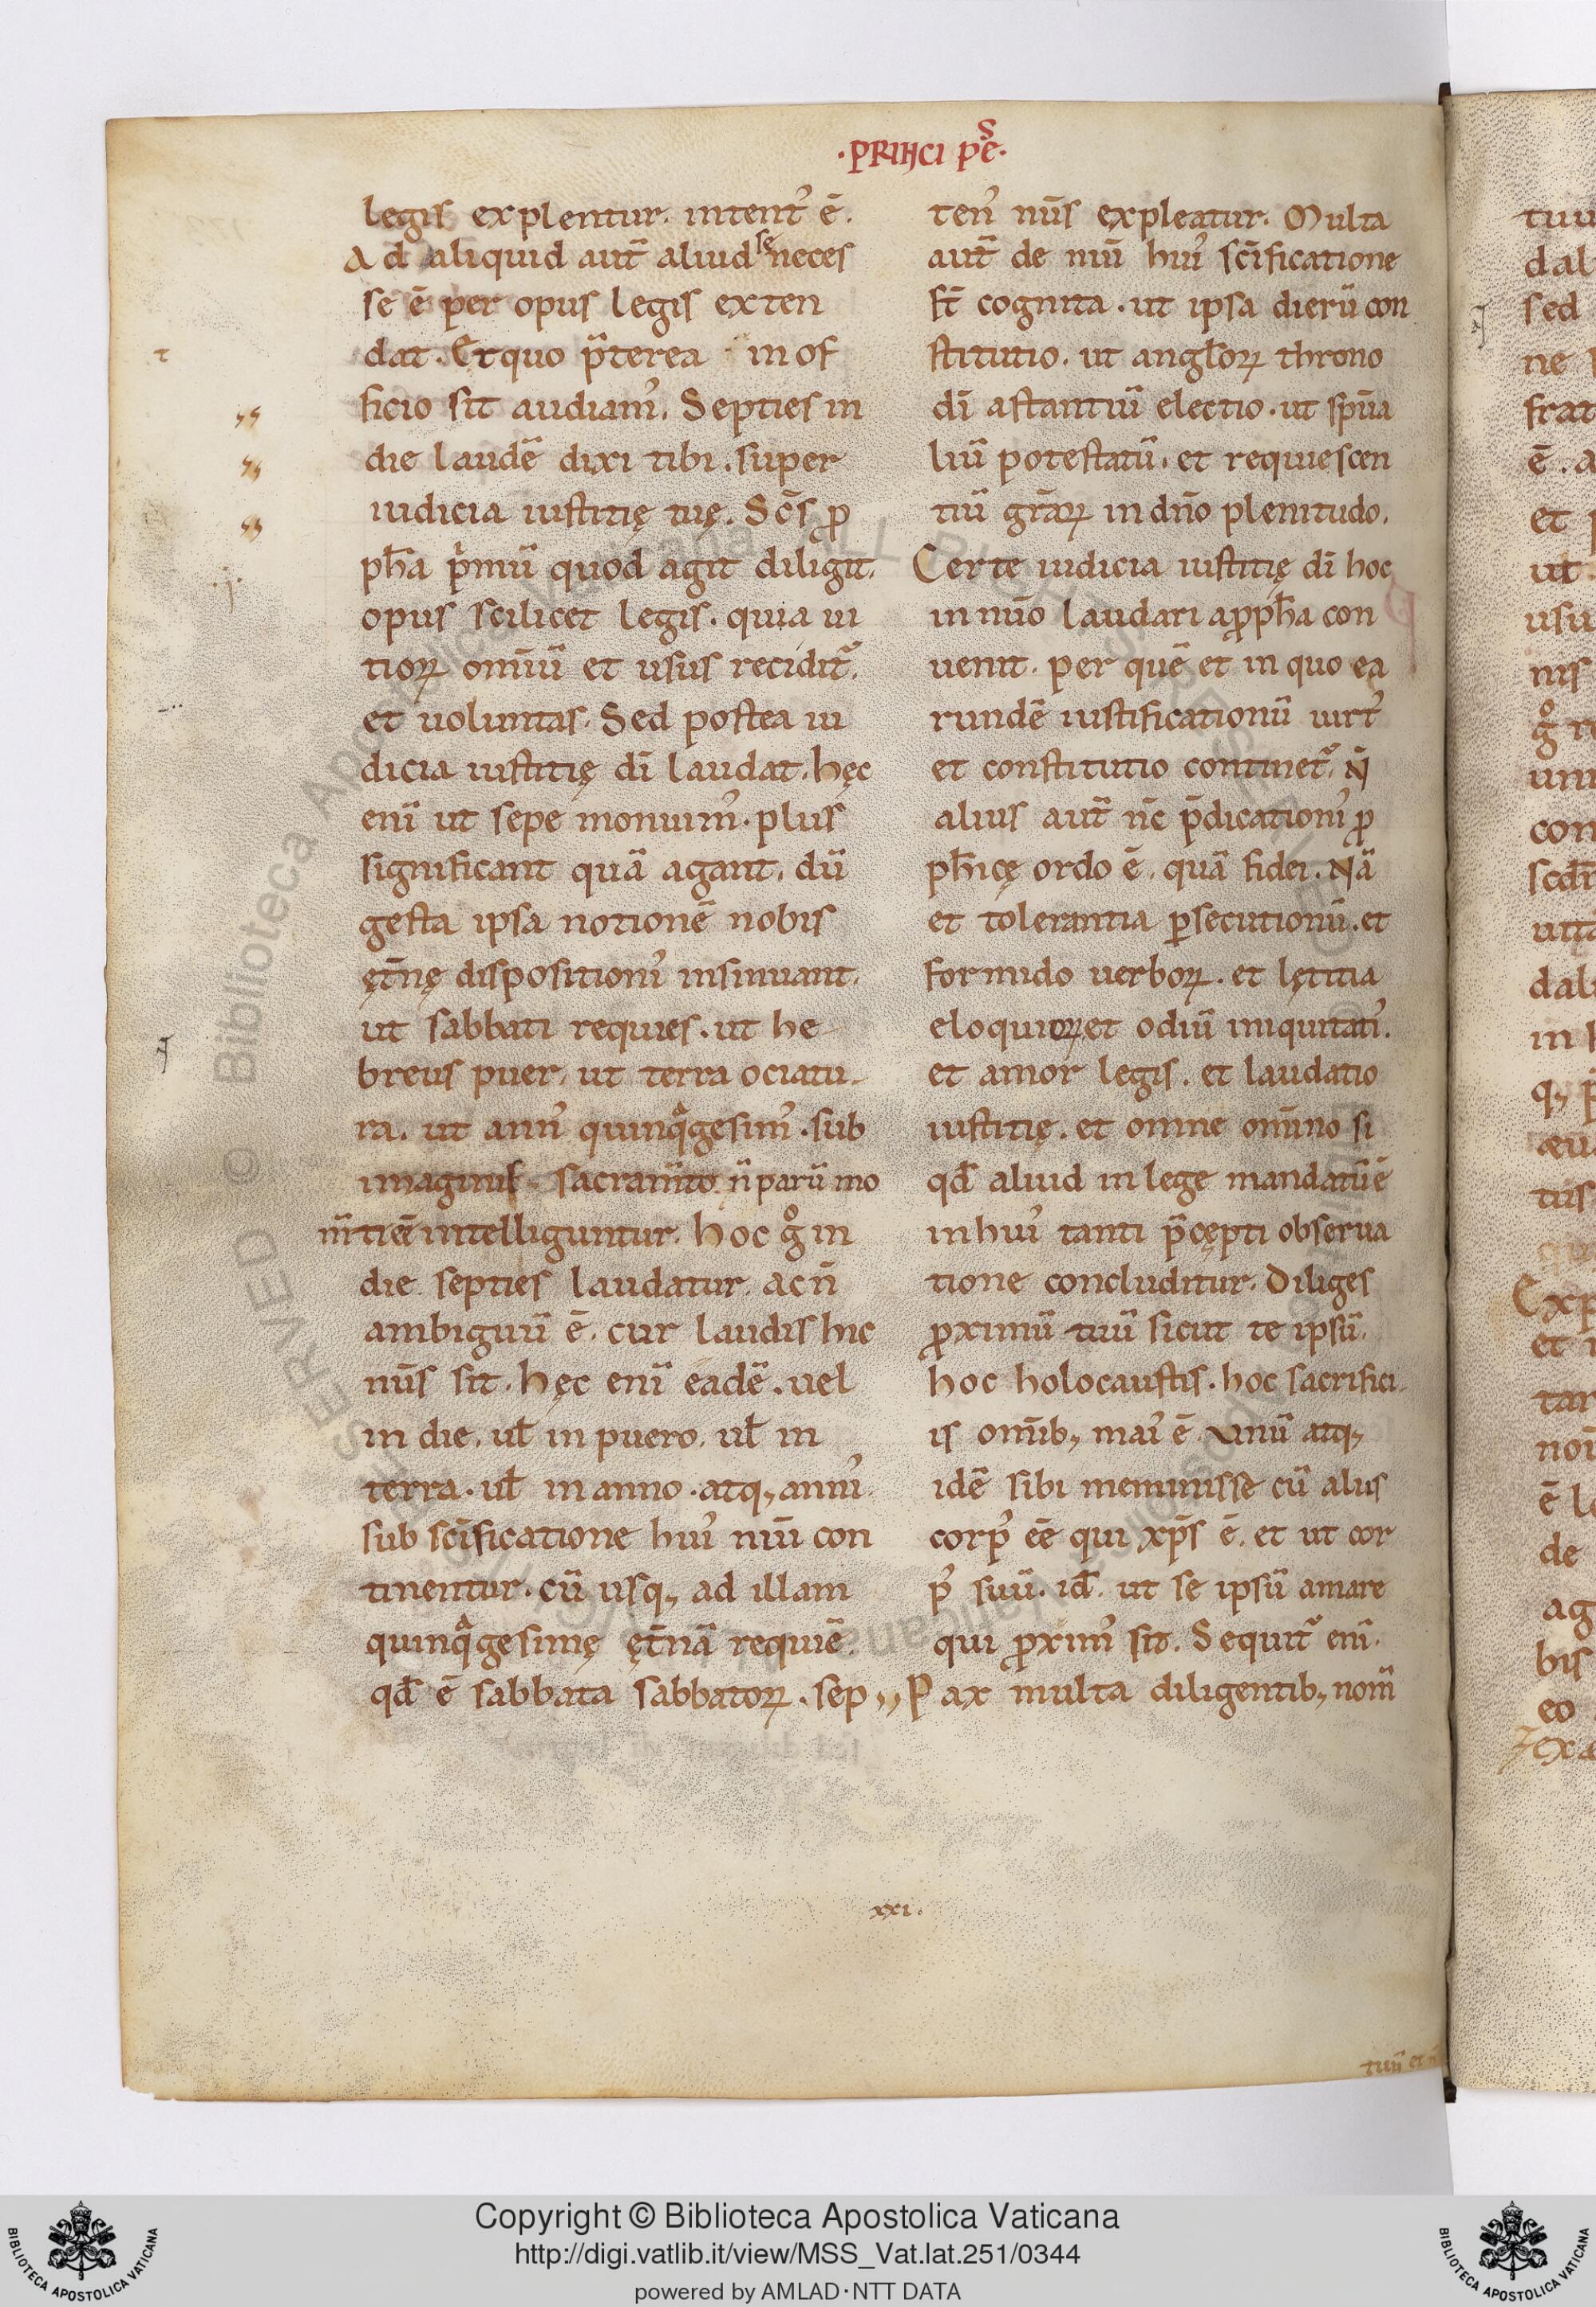 ·PRINCI PE^S·
legis explentur. intent᾿ ē.
Ad aliquid aut̄ aliud se neces
se ē per opus legis exten
dat. Et quo p̄terea in of
ficio sit audiam᾿. Septies in
die laudē dixi tibi. super
iudicia iustitię tuę. Sc̄s ꝓ
ph̄a pͥmū quod agit diligit.
opus scilicet legis. quia ui
tioꝝ omīū et usus recidit᷑.
et uoluntas. Sed postea iu
dicia iustitię dī laudat. hęc
enī ut sepe monuim᾿. plus
significant quā agant. dū
gesta ipsa notionē nobis
ęt̄nę dispositioni᾿ insinuant.
ut sabbati requies. ut he
breus puer. ut terra ociatu-
ra. ut ann᾿ quinqͣgesim᾿. sub
imaginis sacram̄to. n̄ parū mo
m̄tiē intelliguntur. hoc gͦ in
die septies laudatur. ac n̄
ambiguū ē. cur laudis hic
nūs sit. hęc enī eadē. uel
in die. ul̄ in puero. ul̄ in
terra. ul̄ in anno. atq; anni᾿
sub sc̄ificatione hui᾿ nūi con
tinentur. cū usq; ad illam
quinqͣgesimę ęt̄nā requiē.
qd̄ ē sabbata sabbatoꝝ. sep
ten᾿ nūs expleatur. Multa
aut̄ de nūi hui᾿ sc̄ificatione
st̄ cognita. ut ipsa dierū con
stitutio. ut angl̄oꝝ throno
dī astantiū electio. ut sp̄ua
liū potestatū. et requiescen
tiū gr̄aꝝ in dn̄o plenitudo.
Certe iudicia iustitię dī hoc
in nūo laudari a ꝓph̄a con
uenit. per quē et in quo ea
rundē iustificationū uirt᾿
et constitutio continet᷑. N̄
alius aut̄ n̄c p̄dicationi᾿ ꝓ
ph̄icę ordo ē. quā fidei. Nā
et tolerantia ꝑsecutionū. et
formido uerboꝝ. et lętitia
eloquioꝝ. et odiū iniquitati᾿.
et amor legis. et laudatio
iustitię. et omne om̄ino si
qd̄ aliud in lege mandatū ē
in hui᾿ tanti p̄cępti obserua
tione concluditur. Diliges
ꝓximū tuū sicut te ipsū.
hoc holocaustis. hoc sacrifici-
is om̄ib; mai᾿ ē. Vnū atq;
idē sibi meminisse cū aliis
corp᾿ ēē qui xp̄s ē. et ut cor
p᾿ suū. id̄ ut se ipsū amare
qui ꝓxim᾿ sit. Sequit᷑ enī.
Pax multa diligentib; nom̄
xxi.
Copyright © Biblioteca Apostolica Vaticana
http://digi.vatlib.it/view/MSS_Vat.lat.251/0344
powered by AMLAD·NTT DATA
BIBLIOTECA APOSTOLICA VATICANA
BIBLIOTECA APOSTOLICA VATICANA